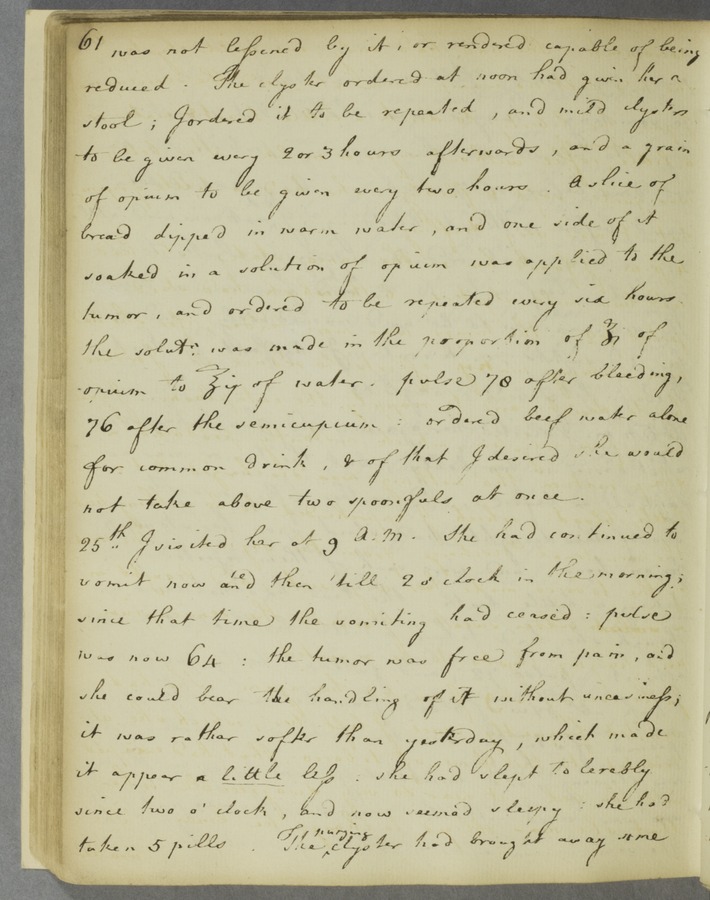 61 was not lessened by it, or rendered capable of being
reduced. The clyster ordered at noon had given her a
stool; I ordered it to be repeated, and mild clysters
to be given every 2 or 3 hours afterwards, and a grain
of opium to be given every two hours. A slice of
bread dipped in warm water, and one side of it
soaked in a solution of opium was applied to the
tumor, and ordered to be repeated every six hours.
the solutn. was made in the proportion of ʒj of
opium to ℥ij of water. pulse 78 after bleeding,
76 after the semicupium: ordered beef water alone
for common drink, & of that I desired she would
not take above two spoonfuls at once.
25th. I visited her at 9 A.M. She had continued to
vomit now and then 'till 2 o'clock in the morning;
since that time the vomiting had ceased: pulse
was now 64: the tumor was free from pain, and
she could bear the handling of it without uneasiness;
it was rather softer than yesterday, which made
it appear a little less: she had slept tolerably
since two o'clock, and now seemed sleepy: she had
taken 5 pills. The clyster had brought away some